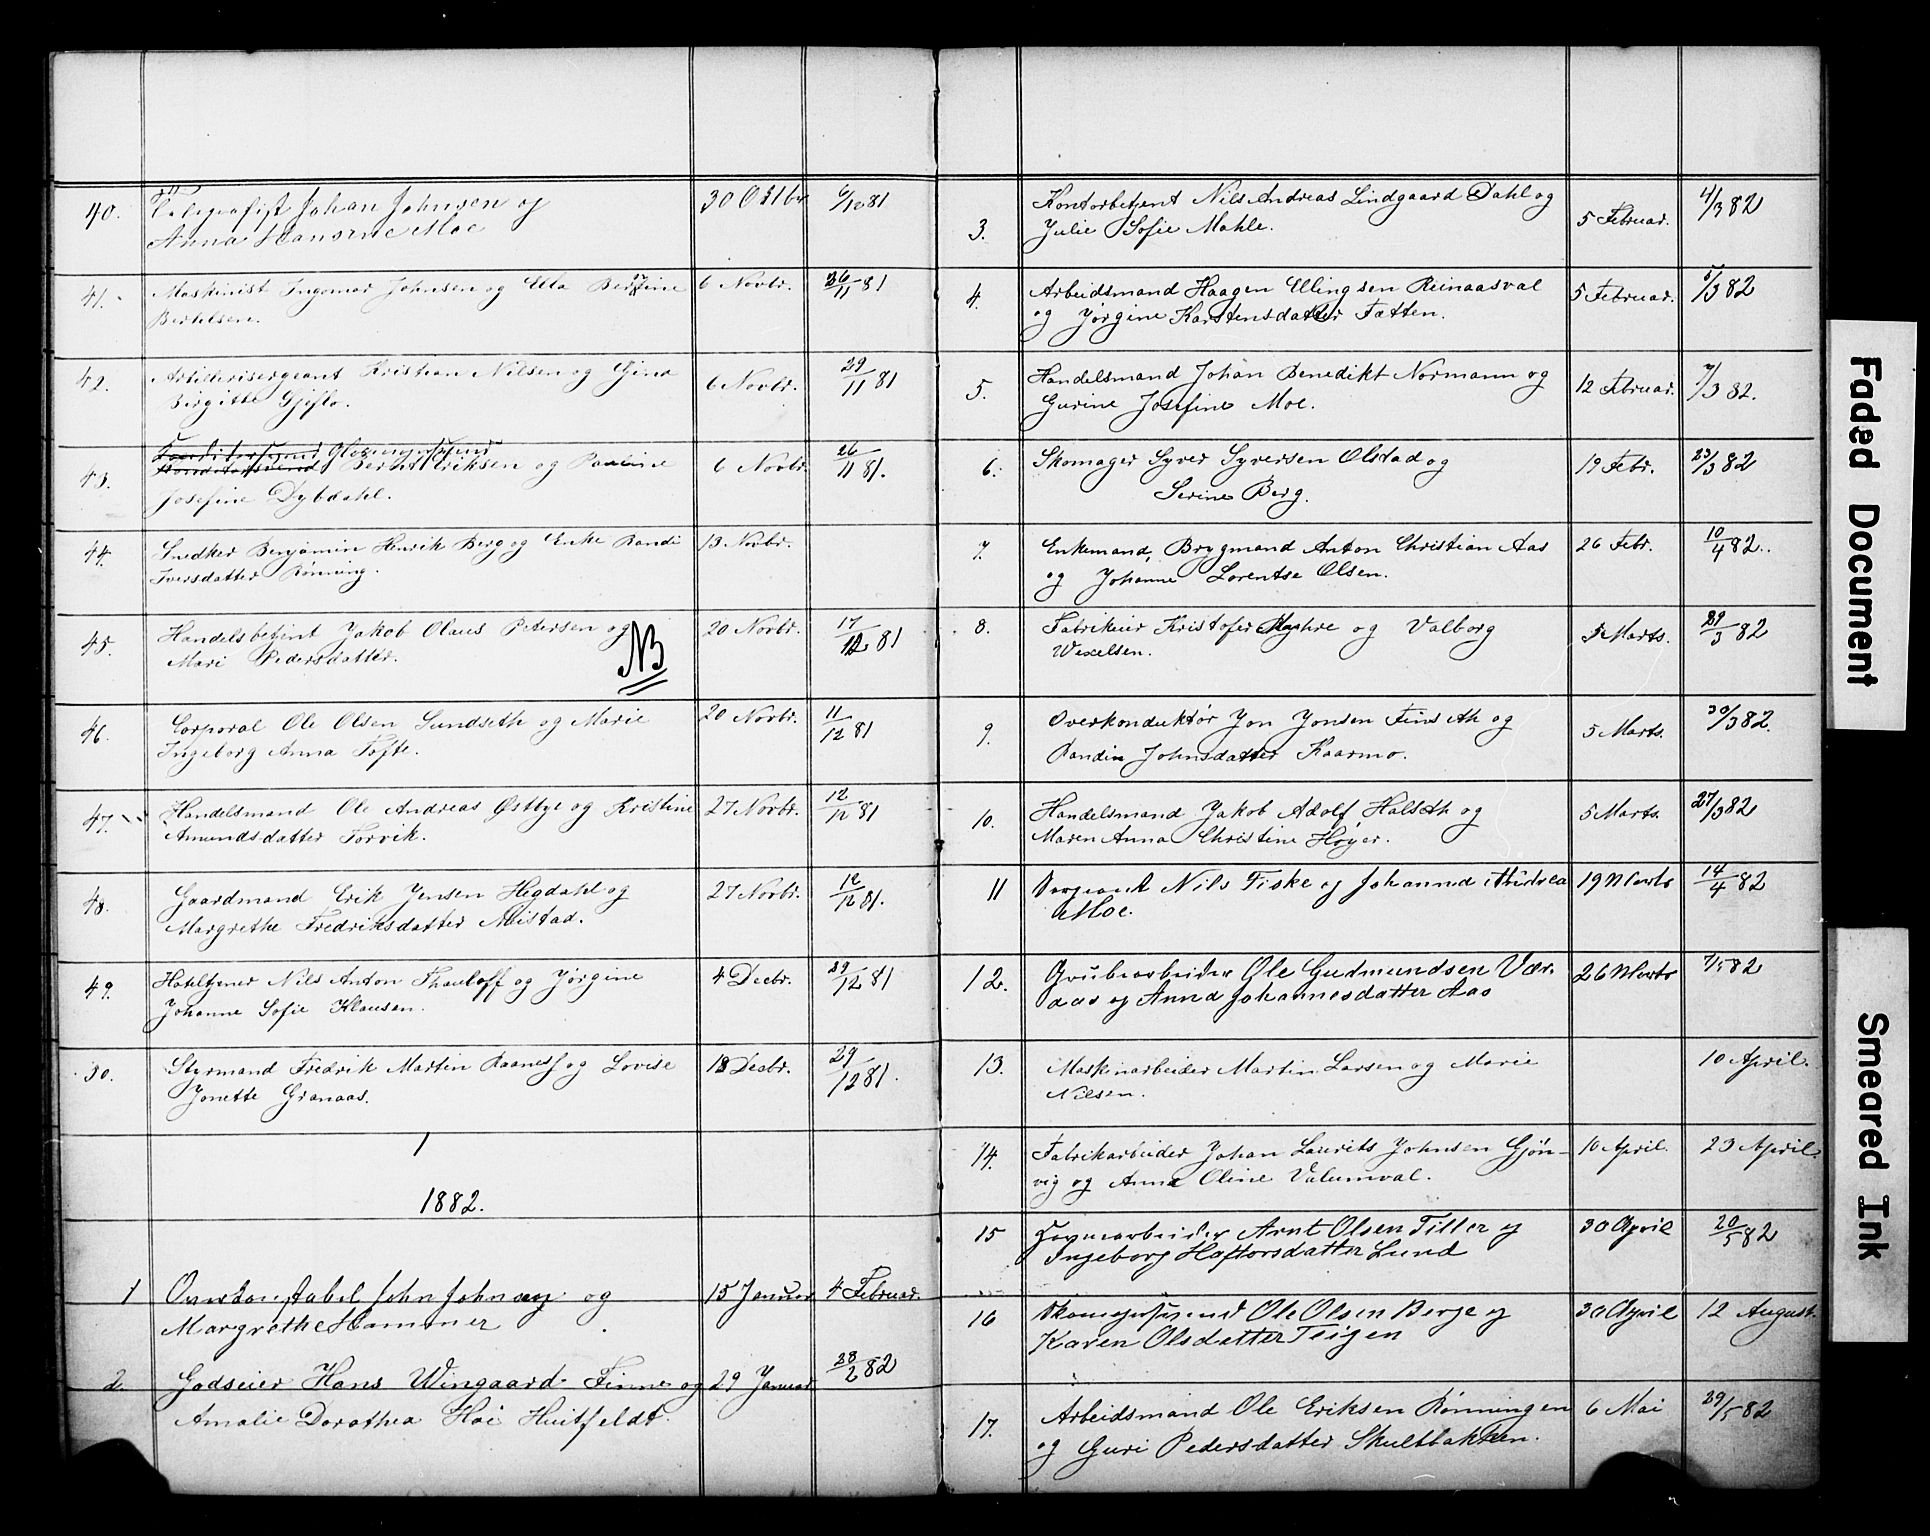 40. Telegrafist Johan Johnsen og 30 Octbr 6/12 81
Anna Hansine Moe
41. Maskinist Ingomar Johnsen og Ella Bergine 6 Novbr. 26/11 81
Berhelsen.
42. Artillerisergeant Kristian Nilsen og Gina 6 Novbr. 29/11 81
Birgitte Gjeflo.
43. Bernt Eriksen og Pauline 6 Novbr. 26/11 81.
Josefine Dybdahl.
44. Snedker Benjamin Henrik Berg og Enke Randi 13 Novbr.
Iversdatter Rønning.
45. Handelsbetjent Jakob Olaus Petersen og 20 Novbr. 17/12 81
Mari Pedersdatter. NB
46. Corporal Ole Olsen Sundseth og Marie 20 Novbr. 11/12 81
Ingeborg Anna Tofte.
47. Handelsmand Ole Andreas Østbye og Kristine 27 Novbr. 12/12 81
Amundsdatter Forvik.
48. Gaardmand Erik Jensen Hegdahl og 27 Novbr. 12/12 81.
Margrethe Fredriksdatter Moistad.
49. Hoteltjener Nils Anton Thauloff og Jørgine 4 Decbr. 29/12 81
Johanne Sofie Klausen.
50. Styrmand Fredrik Martin Raaness og Lovise 18 Decbr. 29/12 81.
Jonette Granaas.
1882.
1 Overkonstabel John Johnsen og 15 Januar 4 Februar.
Margrethe Hammer
2. Godseier Hans Wingaard Finne og 29 Januar 28/2 82
Amalie Dorothea Hoe Huitfeldt.
3. Kontorbetjent Nils Andreas Lindgaard Dahl og 5 Februar. 4/3 82
Julie Sofie Mahle.
4. Arbeidsmand Haagen Ellingsen Reinaasval 5 Februar. 5/3 82
og Jørgine Karstensdatter Fætten.
5. Handelsmand Johan Benedikt Normann og 12 Februar. /3 82.
Gurine Josefine Moe.
6. Skomager Syver Syversen Olstad og 19 Febr. 23/3 82
Serine Berg.
7. Enkemand, Brygmand Anton Christian Aas 26 Febr. 10/4 82.
og Johanne Lorentse Olsen.
8. Fabrikeier Kristofer Myhre og Valborg 5 Marts. 29/3 82
Wexelsen.
9. Overkonduktør Jon Jonsen Finseth og 5 Marts. 30/3 82.
Randin Johnsdatter Kaarmo.
10. Handelsmand Jakob Adolf Halseth og 5 Marts. 27/3 82
Maren Anna Christine Høyer.
11 Sergeant Nils Fiske og Johanna Andrea 19 Marts 14/4 82
Moe.
12. Grubearbeider Ole Gudmundsen Vær- 26 Marts 7/5 82
aas og Anna Johannesdatter Aas
13. Maskinarbeider Martin Larsen og Marie 10 April.
Nilsen.
14. Fabrikarbeider Johan Laurits Johnsen Gjøn- 10 April. 23 April.
vig og Anna Oline Valumval.
15 Jernarbeider Arnt Olsen Tiller og 30 April 20/5 82
Ingeborg Haftorsdatter Lund
16 Skomagersvend Ole Olsen Berge og 30 April 12 August.
Karen Olsdatter Teigen
17. Arbeidsmand Ole Eriksen Rønningen 6 Mai 29/5 82
og Guri Pedersdatter Skultbakken.
Faded Document
Smeared Ink